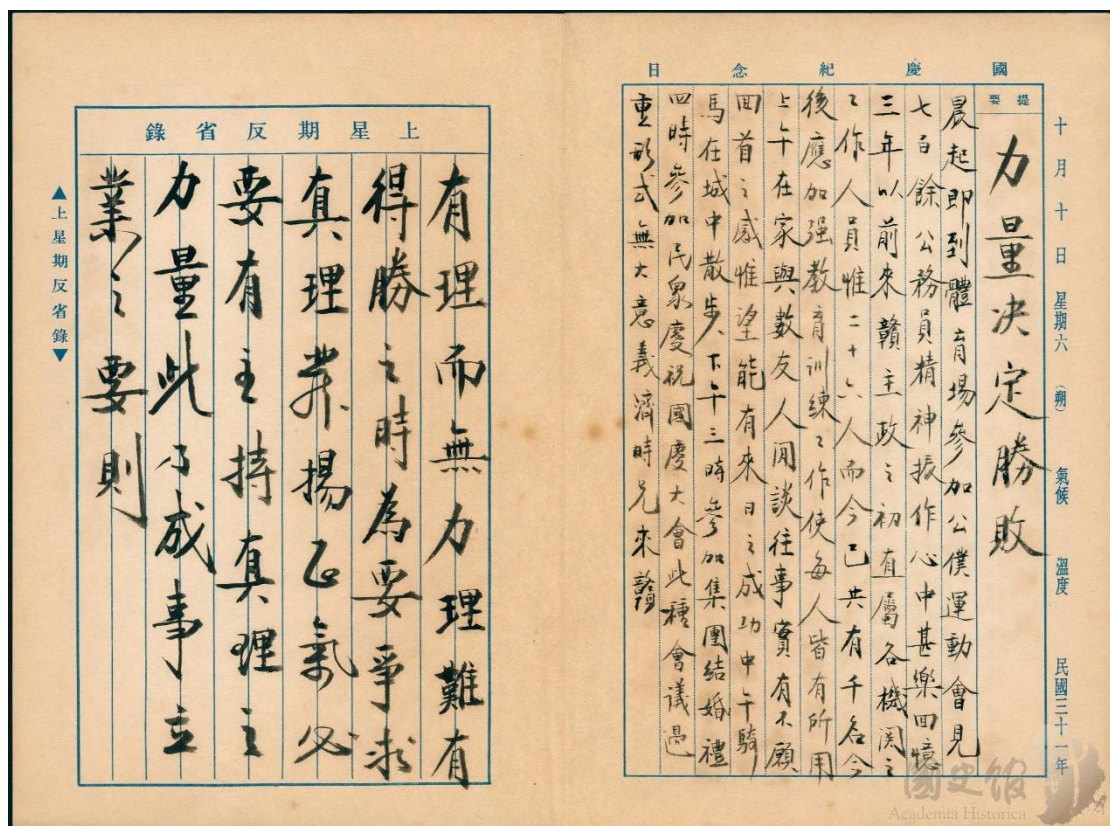 國慶紀念日
十月十日 星期六 (朔) 氣候 溫度 民國三十一年
提要
力量決定勝敗
晨起即到體育場參加公僕運動會見
七百餘公務員精神振作心中甚樂回憶
三年以前來贛主政之初直屬各機関之
工作人員惟二十六人而今已共有千名今
後應加强教育訓練工作使每人皆有所用
上午在家與數友人閒談往事實有不願
回首之感惟望能有來日之成功中午騎
馬在城中散步下午三時參加集團結婚禮
四時參加民眾慶祝國慶大會此種會議過
重形式無大意義濟時兄來贛
上星期反省錄
有理而無力理難有
得勝之時為要爭求
真理發揚正氣必
要有主持真理之
力量此乃成事立
業之要則
▲上星期反省錄▼
國史館
Academia Historica